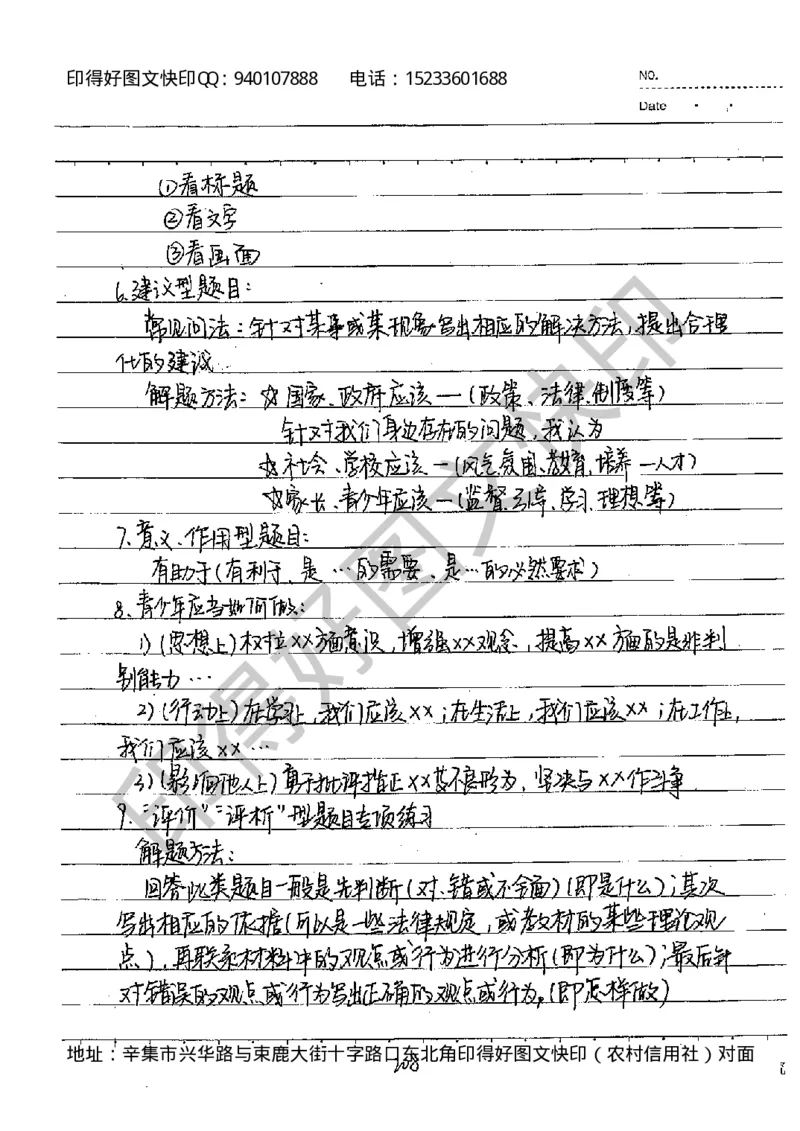 印得好图文快印QQ：940107888 电话：15233601688
NO.
Date
①看标题
②看文字
③看画面
6.建议型题目：
常见问法：针对某事或某现象写出相应的解决方法，提出合理
化的建议
解题方法：☆国家、政府应该—（政策、法律、制度等）
针对我们身边存在的问题，我认为
☆社会、学校应该—（风气氛围、教育、培养—人才）
☆家长、青少年应该—（监督、引导、学习、理想等）
7.意义、作用型题目：
有助于（有利于、是…的需要、是…的必然要求）
8.青少年应当如何做：
1）（思想上）树立××方面意识，增强××观念，提高××方面的是非判
别能力…
2）（行动上）在学习上，我们应该××；在生活上，我们应该××；在工作上，
我们应该××…
3）（影响他人上）勇于批评指正××等不良行为，坚决与××作斗争
9.“评价”“评析”型题目专项练习
解题方法：
回答此类题目一般是先判断（对、错或不全面）（即是什么）；其次
写出相应的依据（可以是一些法律规定，或教材的某些理论观
点），再联系材料中的观点或行为进行分析（即为什么）；最后针
对错误的观点或行为写出正确的观点或行为。（即怎样做）
地址：辛集市兴华路与束鹿大街十字路口东北角印得好图文快印（农村信用社）对面
208
印得好图文快印